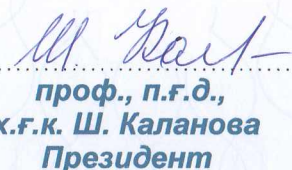 Ш. Кал
проф., п.ғ.д.,
х.ғ.к. Ш. Каланова
Президент